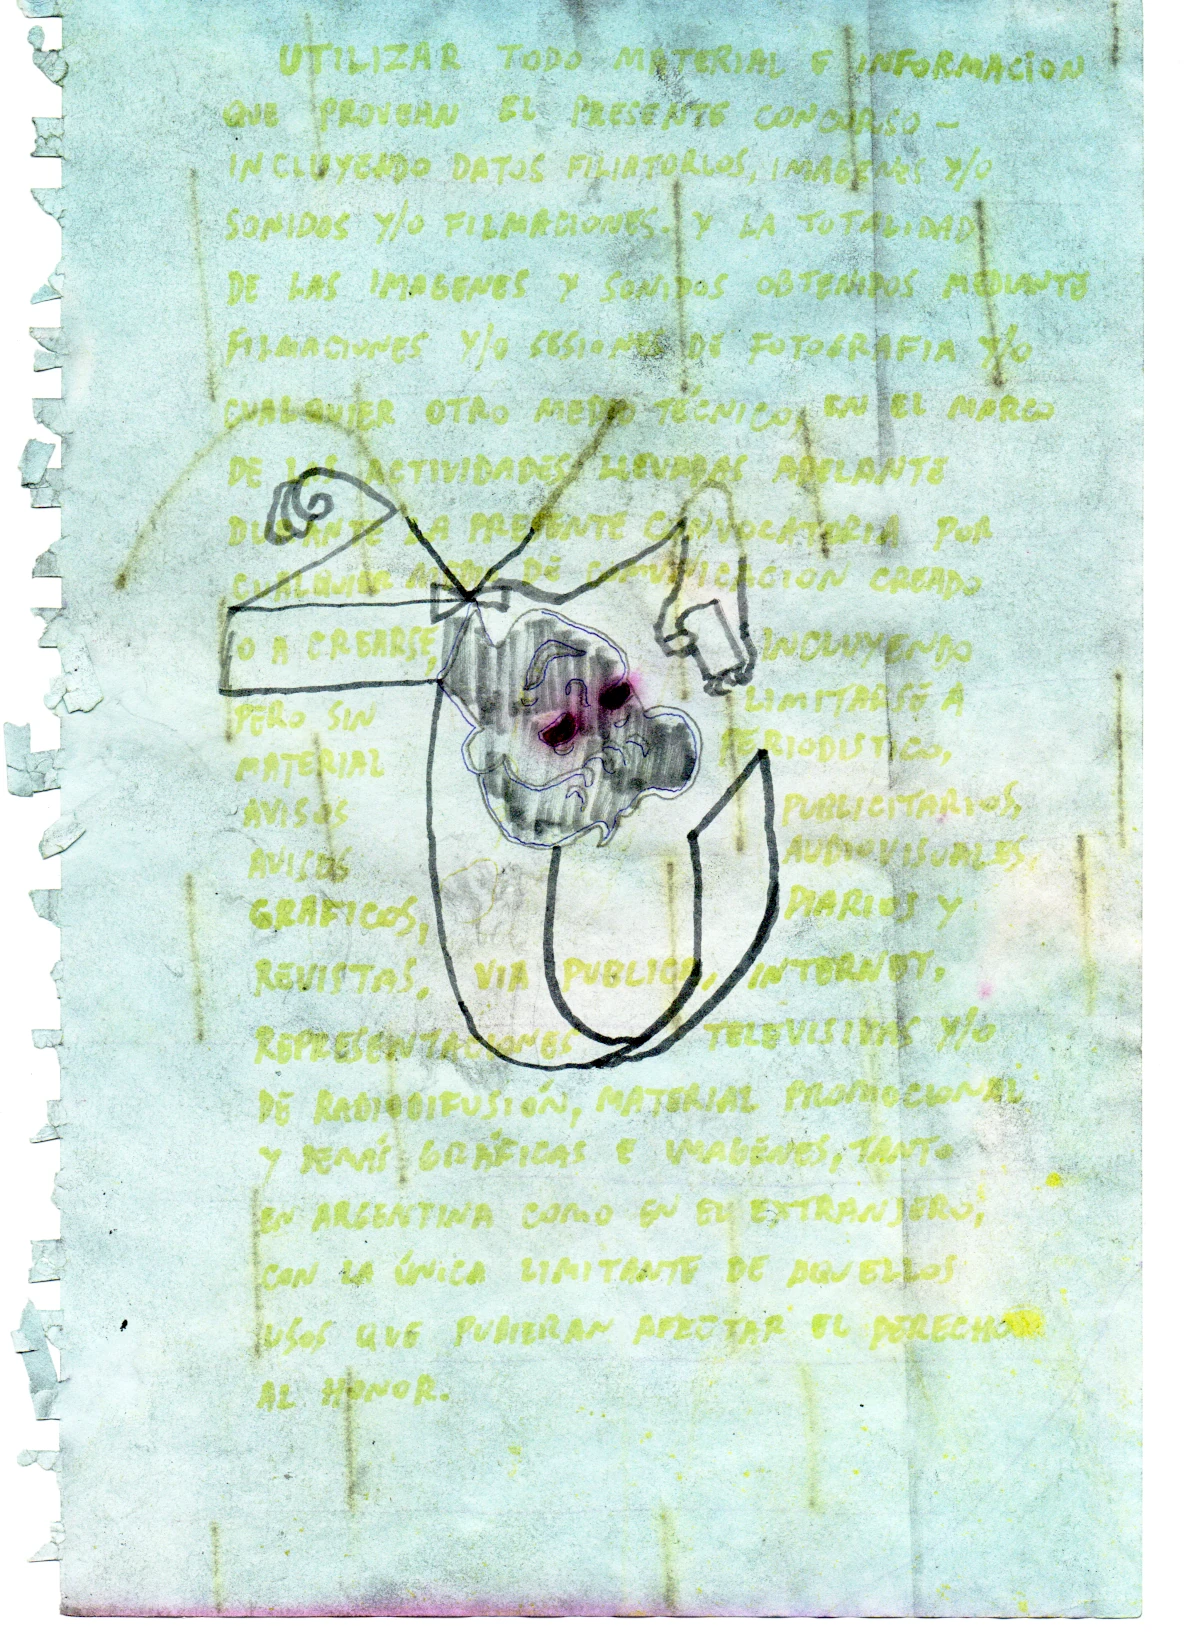 UTILIZAR TODO MATERIAL E INFORMACIÓN
QUE PROVEAN EL PRESENTE CONCURSO –
INCLUYENDO DATOS FILIATORIOS, IMAGENES Y/O
SONIDOS Y/O FILMACIONES. Y LA TOTALIDAD
DE LAS IMAGENES Y SONIDOS OBTENIDOS MEDIANTE
FILMACIONES Y/O SESIONES DE FOTOGRAFIA Y/O
CUALQUIER OTRO MEDIO TÉCNICO, EN EL MARCO
DE LAS ACTIVIDADES LLEVADAS ADELANTE
DURANTE LA PRESENTE CONVOCATORIA POR
CUALQUIER MEDIO DE COMUNICACIÓN CREADO
O A CREARSE, INCLUYENDO
PERO SIN LIMITARSE A
MATERIAL PERIODISTICO,
AVISOS PUBLICITARIOS,
AVISOS AUDIOVISUALES,
GRAFICOS, DIARIOS Y
REVISTAS, VIA PUBLICA, INTERNET,
REPRESENTACIONES TELEVISIVAS Y/O
DE RADIODIFUSIÓN, MATERIAL PROMOCIONAL
Y DEMÁS GRÁFICAS E IMAGENES, TANTO
EN ARGENTINA COMO EN EL EXTRANJERO,
CON LA ÚNICA LIMITANTE DE AQUELLOS
USOS QUE PUDIERAN AFECTAR EL DERECHO
AL HONOR.